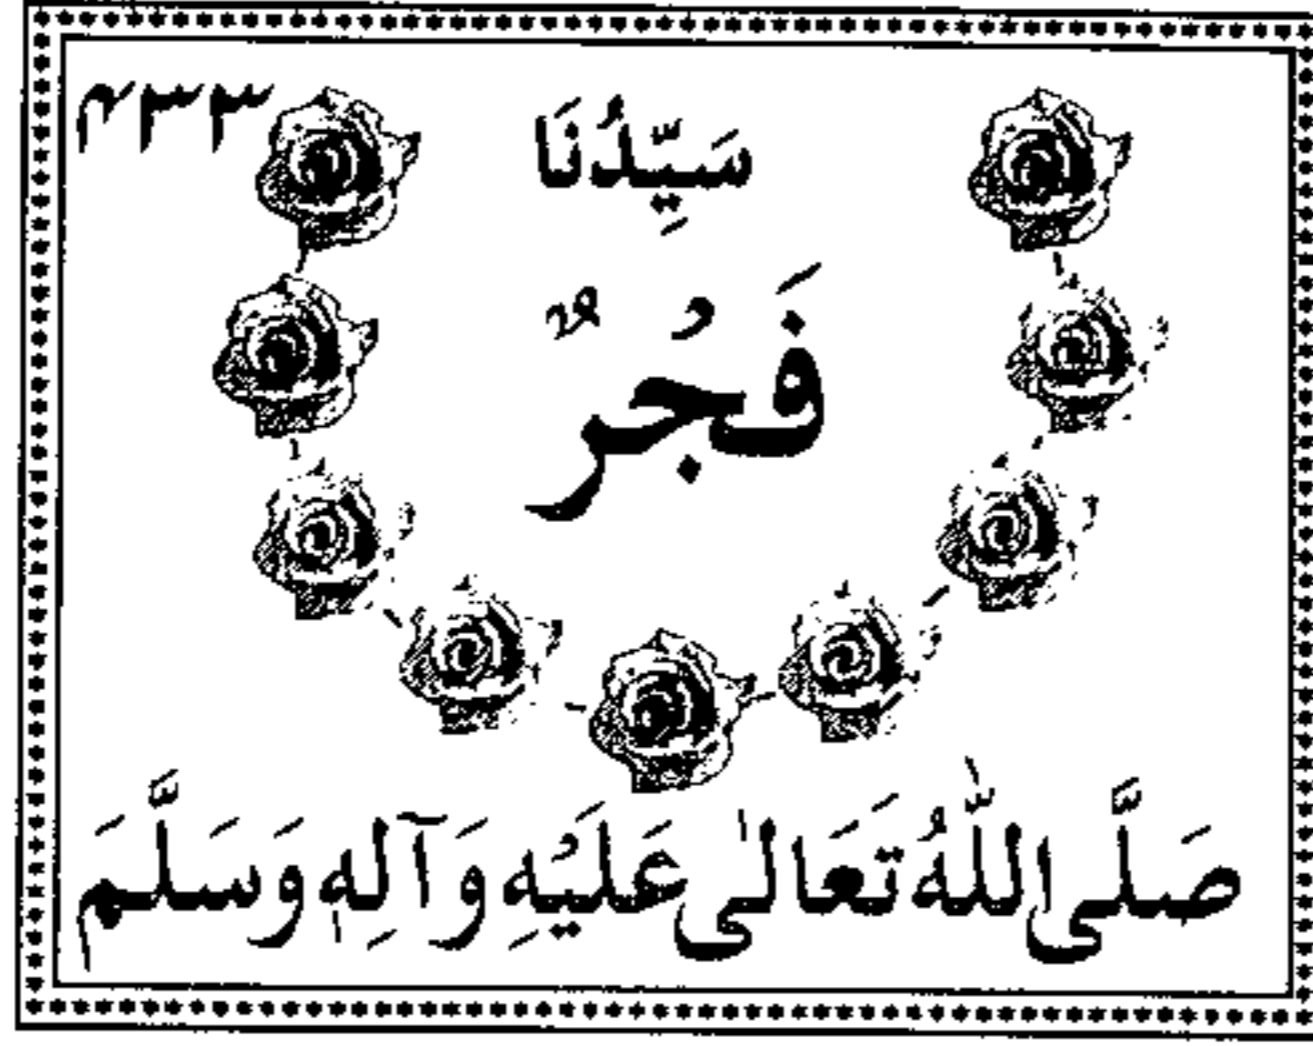 ۴۳۳
سَيِّدُنَا
فَجْرٌ
صَلَّى اللّٰهُ تَعَالىٰ عَلَيْهِ وَآلِهٖ وَسَلَّمَ